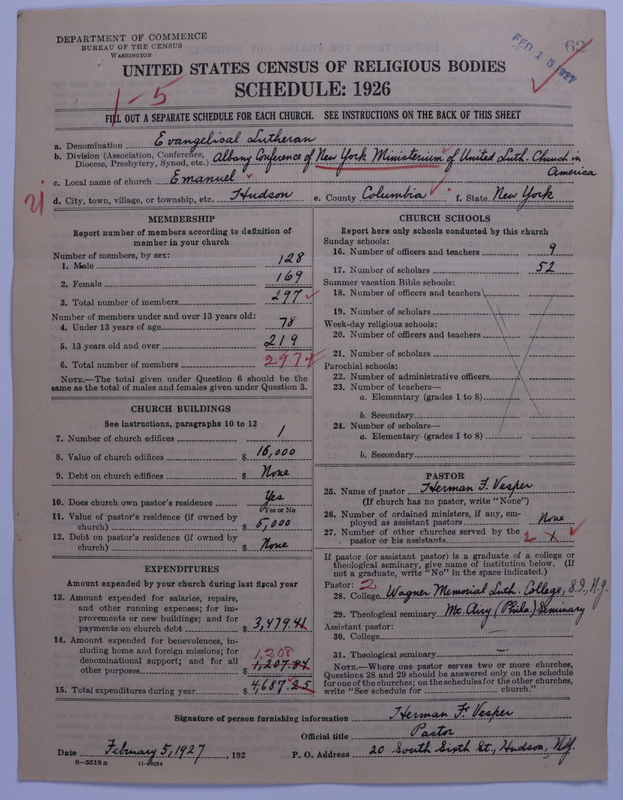 DEPARTMENT OF COMMERCE
BUREAU OF THE CENSUS
WASHINGTON
62
FEB 15 1927
UNITED STATES CENSUS OF RELIGIOUS BODIES
SCHEDULE: 1926
1-5
FILL OUT A SEPARATE SCHEDULE FOR EACH CHURCH. SEE INSTRUCTIONS ON THE BACK OF THIS SHEET
a. Denomination Evangelical Lutheran
b. Division (Association, Conference, Diocese, Presbytery, Synod, etc.) Albany Conference of New York Ministerium of United Luth. Church in America
c. Local name of church Emanuel
d. City, town, village, or township, etc. Hudson e. County Columbia f. State New York
MEMBERSHIP
Report number of members according to definition of
member in your church
Number of members, by sex:
1. Male 128
2. Female 169
3. Total number of members 297
Number of members under and over 13 years old:
4. Under 13 years of age 78
5. 13 years old and over 219
6. Total number of members 297
NOTE.—The total given under Question 6 should be the
same as the total of males and females given under Question 3.
CHURCH BUILDINGS
See instructions, paragraphs 10 to 12
7. Number of church edifices 1
8. Value of church edifices $ 16,000
9. Debt on church edifices $ None
10. Does church own pastor's residence Yes
Yes or No
11. Value of pastor's residence (if owned by
church) $ 5,000
12. Debt on pastor's residence (if owned by
church) $ None
EXPENDITURES
Amount expended by your church during last fiscal year
13. Amount expended for salaries, repairs,
and other running expenses; for im-
provements or new buildings; and for
payments on church debt $ 3,479.41
14. Amount expended for benevolences, in-
cluding home and foreign missions; for
denominational support; and for all
other purposes 1,208 1,207.84
15. Total expenditures during year $ 4,687.25
CHURCH SCHOOLS
Report here only schools conducted by this church
Sunday schools:
16. Number of officers and teachers 9
17. Number of scholars 52
Summer vacation Bible schools:
18. Number of officers and teachers
19. Number of scholars
Week-day religious schools:
20. Number of officers and teachers
21. Number of scholars
Parochial schools:
22. Number of administrative officers
23. Number of teachers—
a. Elementary (grades 1 to 8)
b. Secondary
24. Number of scholars—
a. Elementary (grades 1 to 8)
b. Secondary
PASTOR
25. Name of pastor Herman F. Vesper
(If church has no pastor, write "None")
26. Number of ordained ministers, if any, em-
ployed as assistant pastors None
27. Number of other churches served by the
pastor or his assistants
If pastor (or assistant pastor) is a graduate of a college or
theological seminary, give name of institution below. (If
not a graduate, write "No" in the space indicated.)
Pastor: 2
28. College Wagner Memorial Luth. College, S.I., N.Y.
29. Theological seminary Mt. Airy (Phila.) Seminary
Assistant pastor:
30. College
31. Theological seminary
NOTE.—Where one pastor serves two or more churches,
Questions 28 and 29 should be answered only on the schedule
for one of the churches; on the schedules for the other churches,
write "See schedule for church."
Signature of person furnishing information Herman F. Vesper
Official title Pastor
Date February 5, 1927, 192 P. O. Address 20 South Sixth St., Hudson, N.Y.
8-5518 a